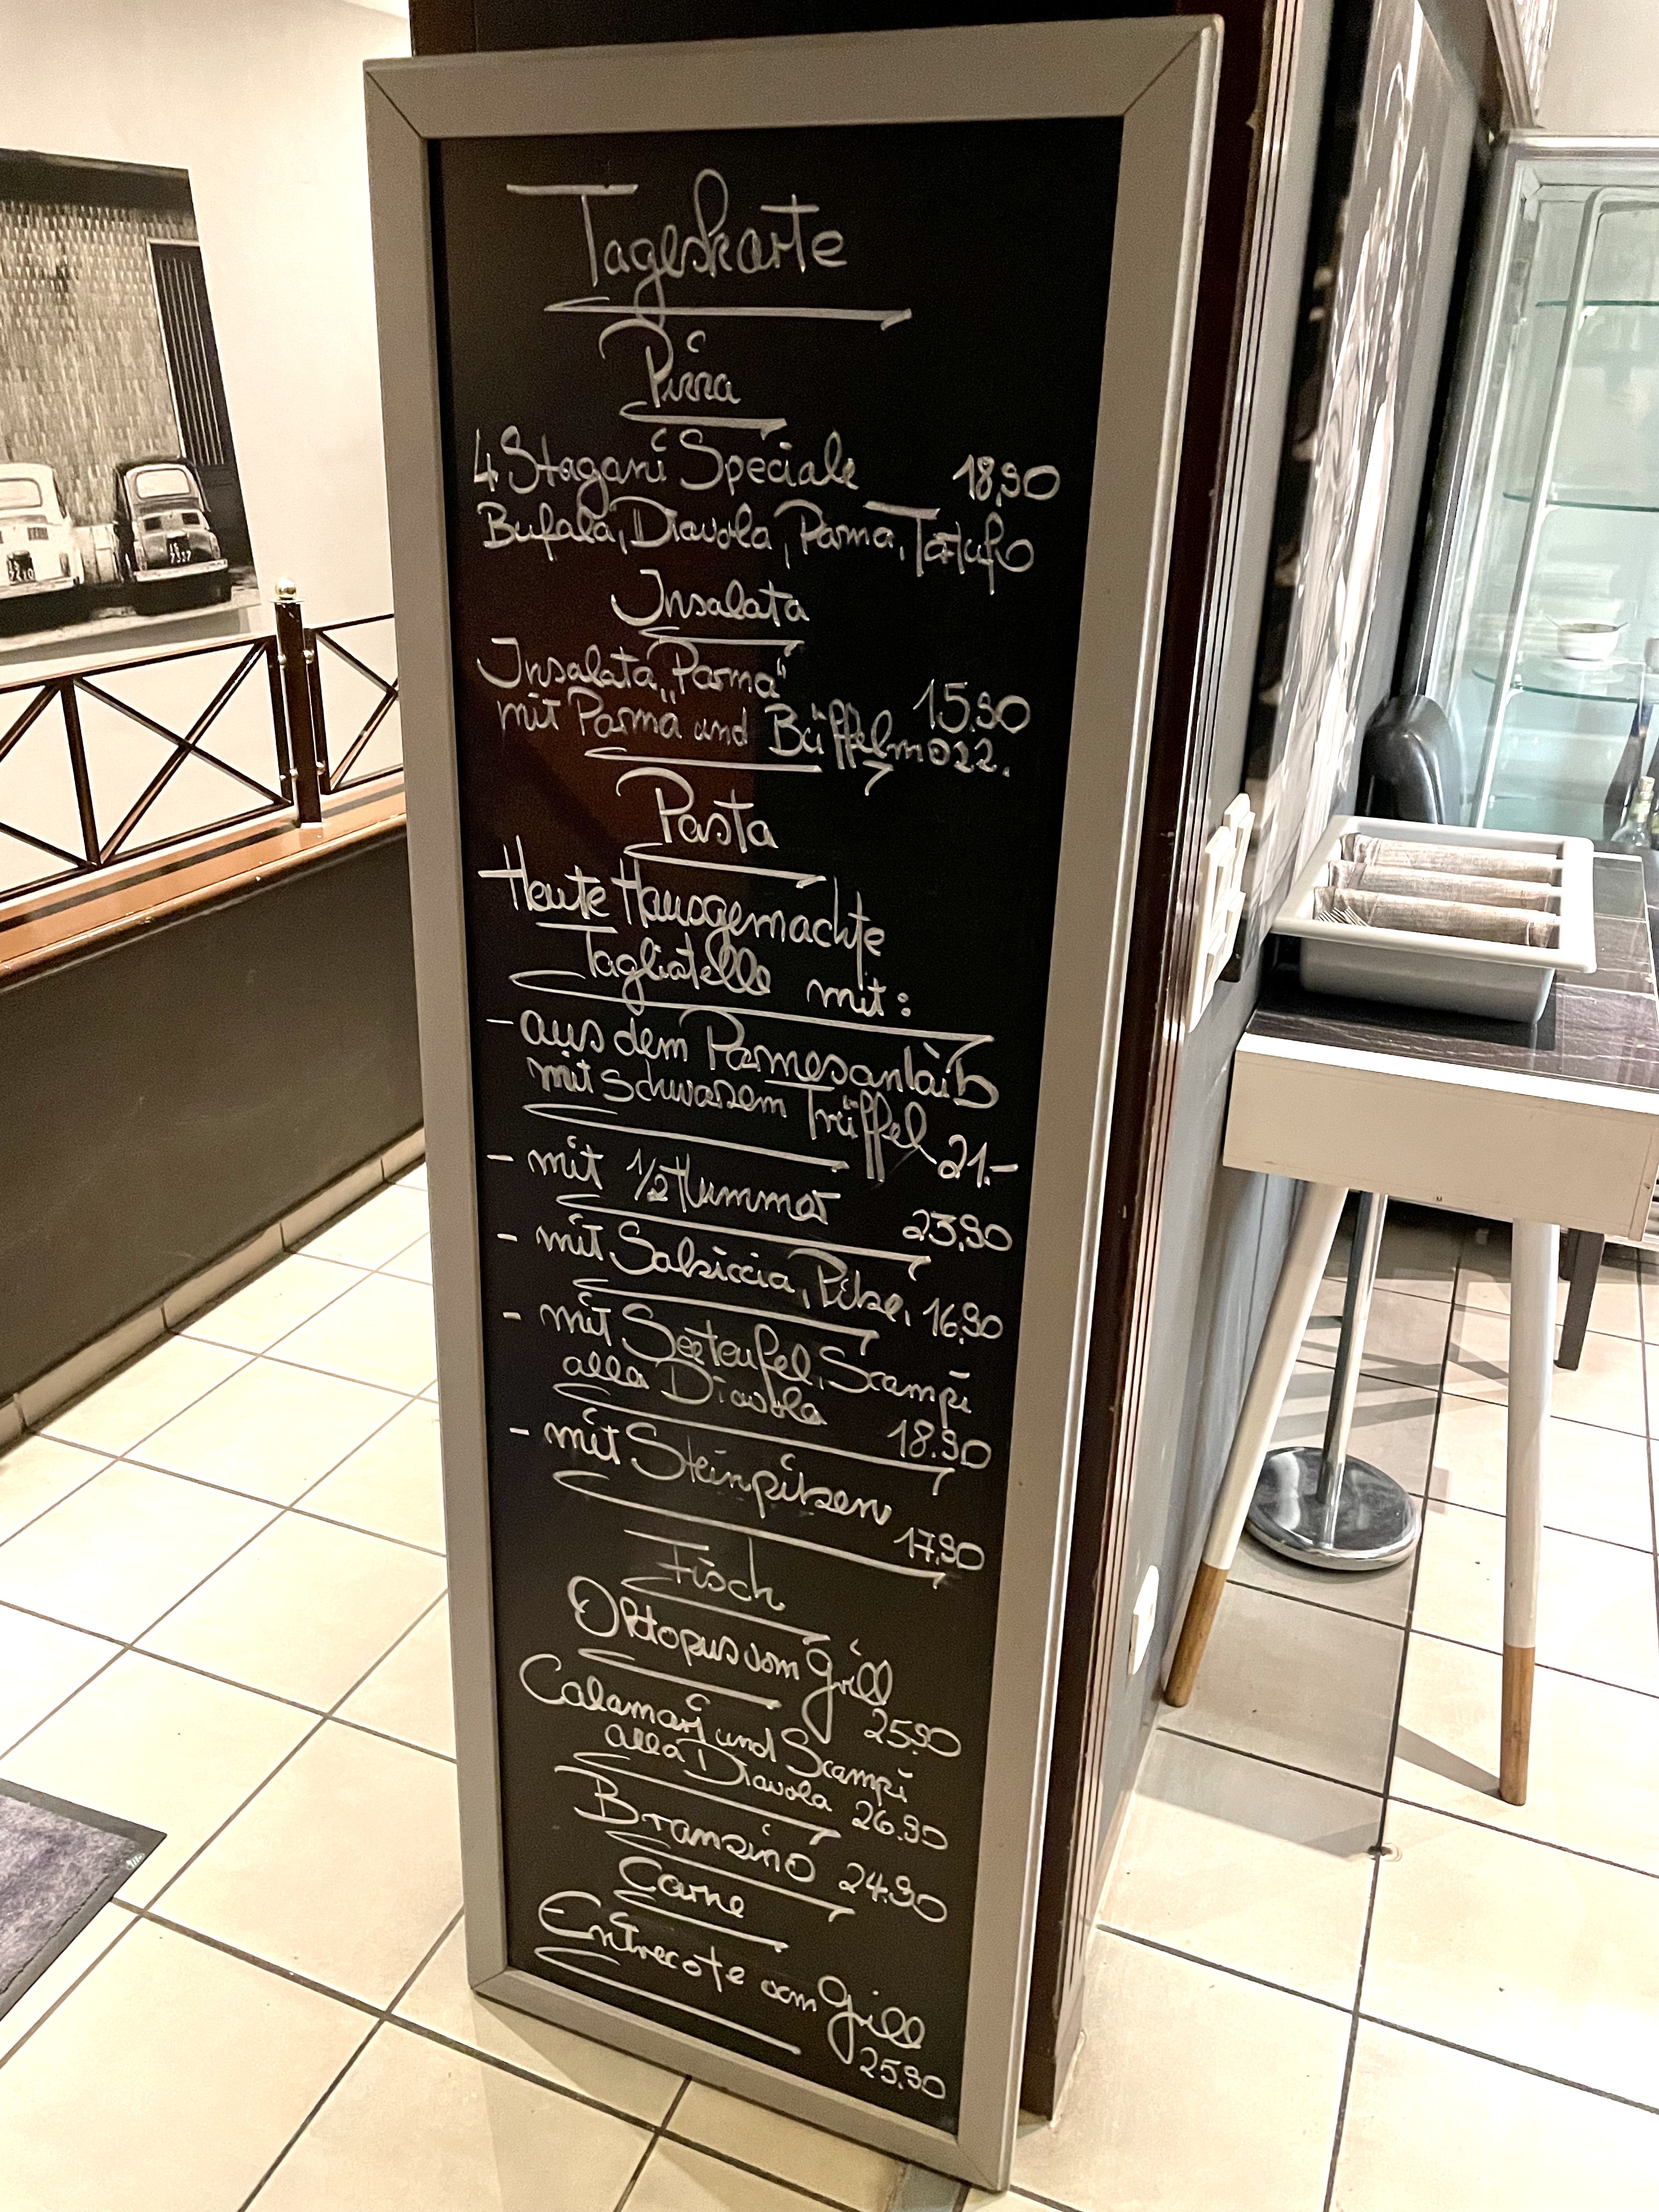 Tageskarte
Pizza
4 Stagani Speciale 18,90
Bufala, Diavola, Parma, Tartufo
Insalata
Insalata „Parma“
15.90
mit Parma und Büffelmozz.
Pasta
Heute Hausgemachte
Tagliatelle mit:
- aus dem Parmesanlaib
mit schwarzem Trüffel 21.-
- mit 1/2 Hummer 23,90
- mit Salsiccia, Pilze, 16,90
- mit Seeteufel, Scampi
alla Diavola 18.90
- mit Steinpilzen
17,90
Fisch
Oktopus vom Grill
25.90
Calamari und Scampi
alla Diavola 26.90
Branzino 24.90
Carne
Entrecote vom Grill
25.90